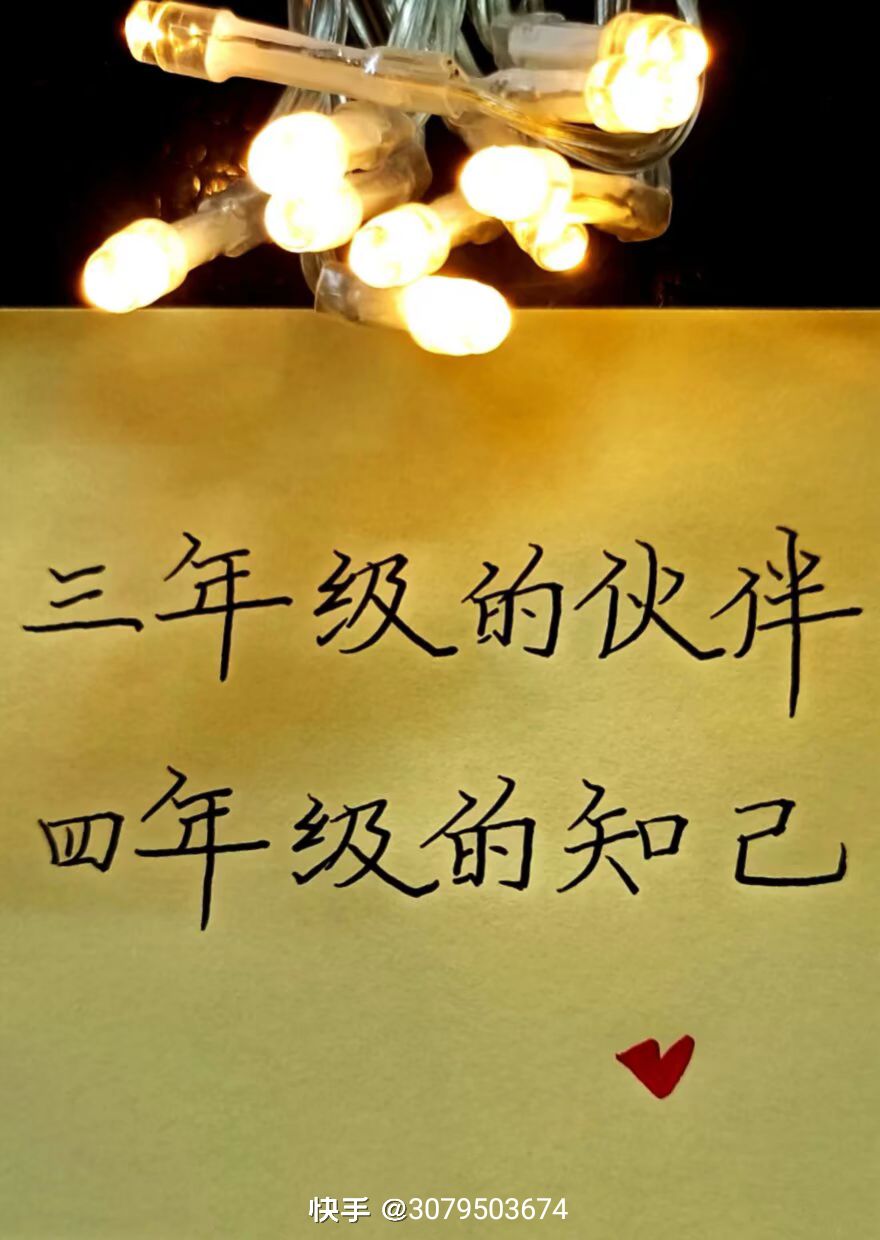 三年级的伙伴
四年级的知己
快手 @3079503674